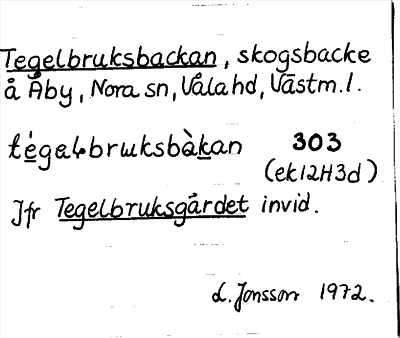 Tegelbruksbackan, skogsbacke
å Åby, Nora sn, Våla hd, Västm.l.
té̱gəl-bruksbàḵan 303
(ek12H3d)
Jfr Tegelbruksgärdet invid.
L. Jonsson 1972.